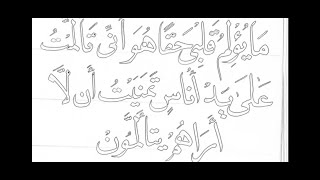 مَا يُؤْلِمُ قَلْبِي حَقًا هُوَ أَنِّي تَأَلَّمْتُ
عَلَى يَدِ أُنَاسٍ تَمَنَيْتُ أَن لَّا
أَرَاهُمْ يَتَأَلَّمُونَ